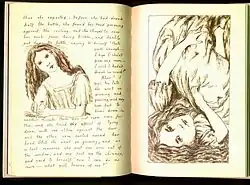 than she expected: before she had drunk
half the bottle, she found her head pressing
against the ceiling, and she stooped to save
her neck from being broken, and hastily
put down the bottle, saying to herself "that's
quite enough—
I hope I shan't
grow any more—
I wish I hadn't
drunk so much!"
Alas! it
was too late:
she went on
growing and
growing, and very
soon had to
kneel down
room even for
this, and she tried the effect of lying
down, with one elbow against the door,
and the other arm curled round her
head. Still she went on growing, and as
a last resource she put one arm out of
the window, and one foot up the chimney,
and said to herself "now I can do no
more—what will become of me?"